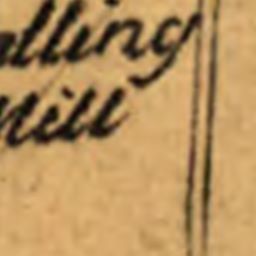 lling
Mill